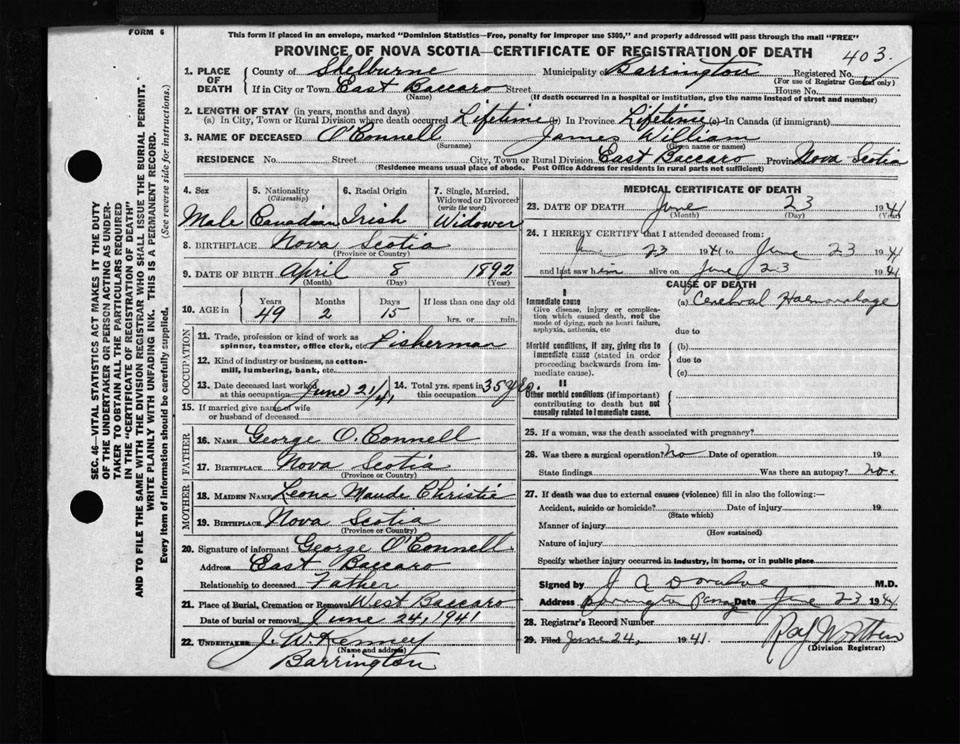 FORM 6
This form if placed in an envelope, marked "Dominion Statistics—Free, penalty for improper use $300," and properly addressed will pass through the mail "FREE"
PROVINCE OF NOVA SCOTIA—CERTIFICATE OF REGISTRATION OF DEATH
403
1. PLACE OF DEATH
County of Shelburne Municipality of Barrington Registered No.
(For use of Registrar General only)
If in City or Town East Baccaro Street House No.
(Name) (If death occurred in a hospital or institution, give the name instead of street and number)
2. LENGTH OF STAY (in years, months and days)
(a) In City, Town or Rural Division where death occurred Lifetime (b) In Province Lifetime (c) In Canada (if immigrant)
3. NAME OF DECEASED O'Connell James William
(Surname) (Given name or names)
RESIDENCE No. Street City, Town or Rural Division East Baccaro Province Nova Scotia
(Residence means usual place of abode. Post Office Address for residents in rural parts not sufficient)
SEC. 46—VITAL STATISTICS ACT MAKES IT THE DUTY
OF THE UNDERTAKER OR PERSON ACTING AS UNDER-
TAKER TO OBTAIN ALL THE PARTICULARS REQUIRED
IN THE "CERTIFICATE OF REGISTRATION OF DEATH"
AND TO FILE THE SAME WITH THE DIVISION REGISTRAR WHO SHALL ISSUE THE BURIAL PERMIT.
WRITE PLAINLY WITH UNFADING INK. THIS IS A PERMANENT RECORD.
Every item of information should be carefully supplied. (See reverse side for instructions.)
4. Sex
Male
5. Nationality
(Citizenship)
Canadian
6. Racial Origin
Irish
7. Single, Married,
Widowed or Divorced
(write the word)
Widower
8. BIRTHPLACE Nova Scotia
(Province or Country)
9. DATE OF BIRTH April 8 1892
(Month) (Day) (Year)
10. AGE in Years Months Days If less than one day old
49 2 15 hrs. or min.
OCCUPATION
11. Trade, profession or kind of work as
spinner, teamster, office clerk, etc. Fisherman
12. Kind of industry or business, as cotton-
mill, lumbering, bank, etc.
13. Date deceased last worked
at this occupation June 21/41
14. Total yrs. spent in
this occupation 35 yrs.
15. If married give name of wife
or husband of deceased
FATHER
16. NAME George O. Connell
17. BIRTHPLACE Nova Scotia
(Province or Country)
MOTHER
18. MAIDEN NAME Leone Maude Christie
19. BIRTHPLACE Nova Scotia
(Province or Country)
20. Signature of informant George O'Connell
Address East Baccaro
Relationship to deceased Father
21. Place of Burial, Cremation or Removal West Baccaro
Date of burial or removal June 24, 1941
22. UNDERTAKER J. W. Kenney
(Name and address)
Barrington
MEDICAL CERTIFICATE OF DEATH
23. DATE OF DEATH June 23 1941
(Month) (Day)
24. I HEREBY CERTIFY that I attended deceased from:
June 23 1941 to June 23 1941
and last saw him alive on June 23 1941
CAUSE OF DEATH
I
Immediate cause (a) Cerebral Haemorrhage
Give disease, injury or complica-
tion which caused death, not the
mode of dying, such as heart failure,
asphyxia, asthenia, etc
due to
Morbid conditions, if any, giving rise to (b)
immediate cause (stated in order
proceeding backwards from im-
mediate cause).
due to
(c)
II
Other morbid conditions (if important)
contributing to death but not
causally related to immediate cause.
25. If a woman, was the death associated with pregnancy?
26. Was there a surgical operation? no Date of operation 19
State findings Was there an autopsy? no.
27. If death was due to external causes (violence) fill in also the following:—
Accident, suicide or homicide? Date of injury 19
(State which)
Manner of injury
(How sustained)
Nature of injury
Specify whether injury occurred in industry, in home, or in public place
Signed by M.D.
Address Barrington Date June 23 1941
28. Registrar's Record Number
29. Filed June 24, 1941.
(Division Registrar)